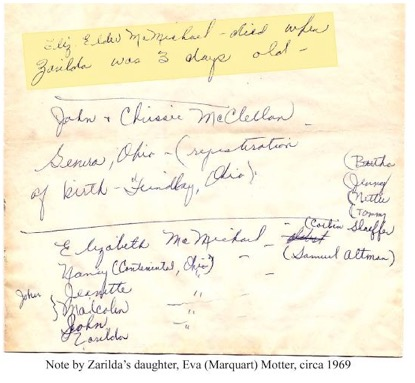 Eliz Elder McMichael - died when
Zarilda was 3 days old -
John + Chrissie McClellan -
Genera, Ohio - (registration
of birth - Findlay, Ohio).
(Bertha
(Jenny
(Nettie
(Tommy
Elizabeth McMichael - (Corbin Slaffer
Nancy (Continental, Ohio) - (Samuel Altman)
John } Jeanette " -
Malcolm "
John "
Zarilda
Note by Zarilda's daughter, Eva (Marquart) Motter, circa 1969